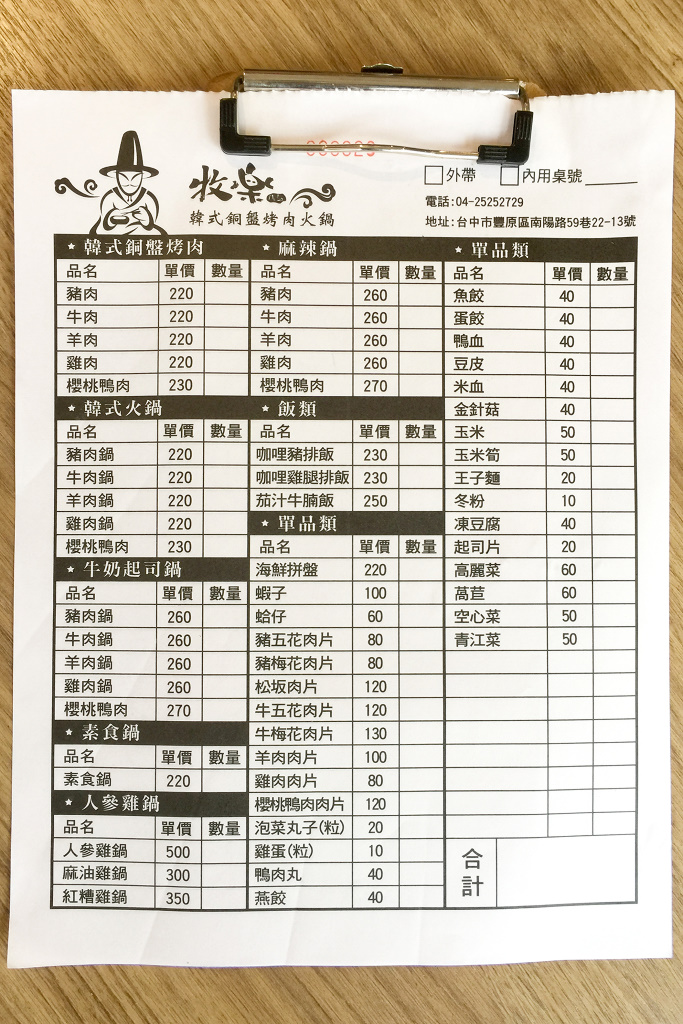 000020
收樂
韓式銅盤烤肉火鍋
外帶 內用桌號
電話:04-25252729
地址:台中市豐原區南陽路59巷22-13號
★ 韓式銅盤烤肉
品名 單價 數量
豬肉 220
牛肉 220
羊肉 220
雞肉 220
櫻桃鴨肉 230
★ 韓式火鍋
品名 單價 數量
豬肉鍋 220
牛肉鍋 220
羊肉鍋 220
雞肉鍋 220
櫻桃鴨肉 230
★ 牛奶起司鍋
品名 單價 數量
豬肉鍋 260
牛肉鍋 260
羊肉鍋 260
雞肉鍋 260
櫻桃鴨肉 270
★ 素食鍋
品名 單價 數量
素食鍋 220
★ 人參雞鍋
品名 單價 數量
人參雞鍋 500
麻油雞鍋 300
紅糟雞鍋 350
★ 麻辣鍋
品名 單價 數量
豬肉 260
牛肉 260
羊肉 260
雞肉 260
櫻桃鴨肉 270
★ 飯類
品名 單價 數量
咖哩豬排飯 230
咖哩雞腿排飯 230
茄汁牛腩飯 250
★ 單品類
品名 單價 數量
海鮮拼盤 220
蝦子 100
蛤仔 60
豬五花肉片 80
豬梅花肉片 80
松坂肉片 120
牛五花肉片 120
牛梅花肉片 130
羊肉肉片 100
雞肉肉片 80
櫻桃鴨肉肉片 120
泡菜丸子(粒) 20
雞蛋(粒) 10
鴨肉丸 40
燕餃 40
★ 單品類
品名 單價 數量
魚餃 40
蛋餃 40
鴨血 40
豆皮 40
米血 40
金針菇 40
玉米 50
玉米筍 50
王子麵 20
冬粉 10
凍豆腐 40
起司片 20
高麗菜 60
萵苣 60
空心菜 50
青江菜 50
合計